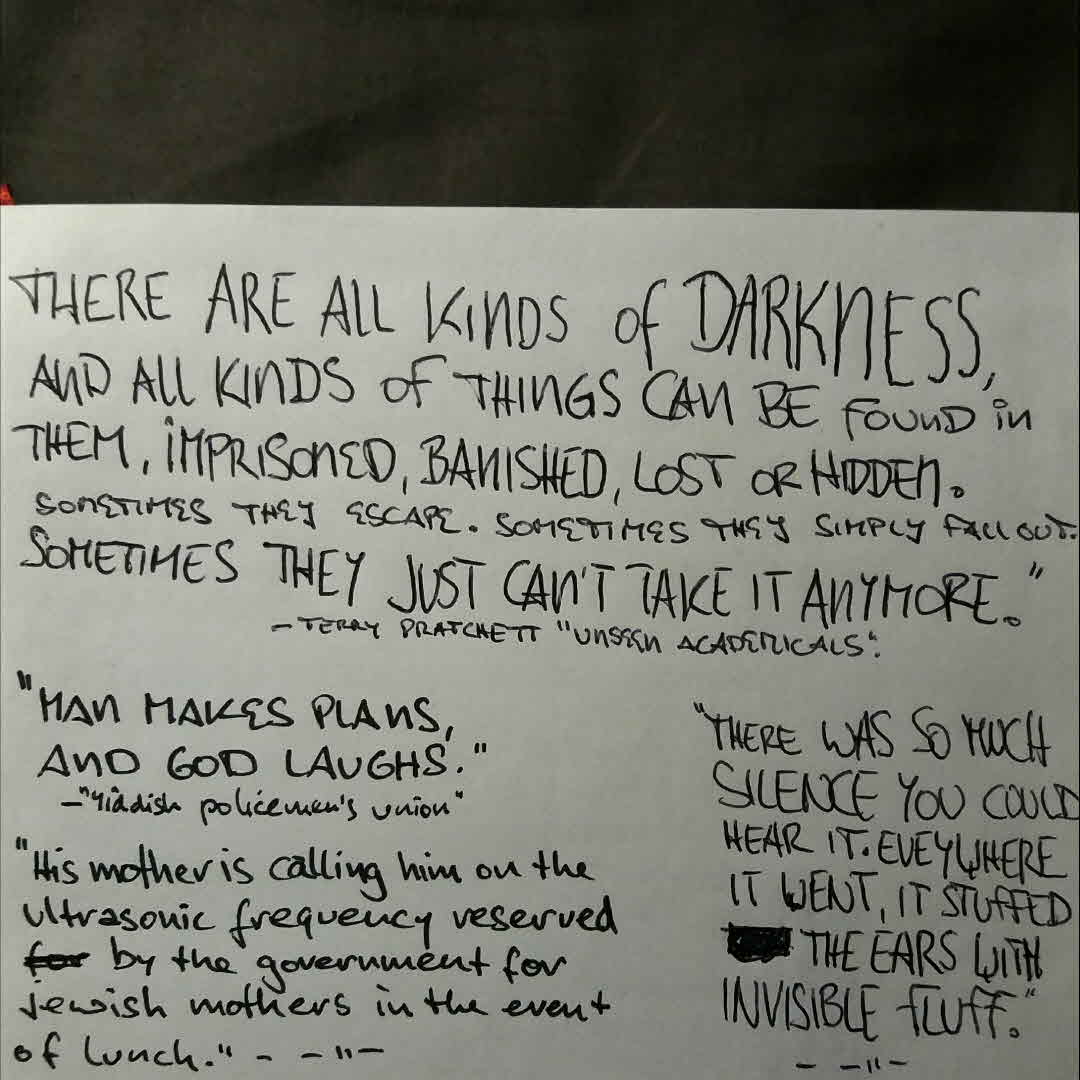 THERE ARE ALL KINDS of DARKNESS,
AND ALL KINDS of THINGS CAN BE FOUND in
THEM, IMPRISONED, BANISHED, LOST OR HIDDEN.
SOMETIMES THEY ESCAPE. SOMETIMES THEY SIMPLY FALL OUT.
SOMETIMES THEY JUST CAN'T TAKE IT ANYMORE."
- TERRY PRATCHETT "UNSEEN ACADEMICALS".
"MAN MAKES PLANS,
AND GOD LAUGHS."
-"Yiddish policemen's union"
"His mother is calling him on the
ultrasonic frequency reserved
for by the government for
jewish mothers in the event
of lunch." - -"-
"THERE WAS SO MUCH
SILENCE YOU COULD
HEAR IT. EVEYWHERE
IT WENT, IT STUFFED
THE EARS WITH
INVISIBLE FLUFF."
- -"-